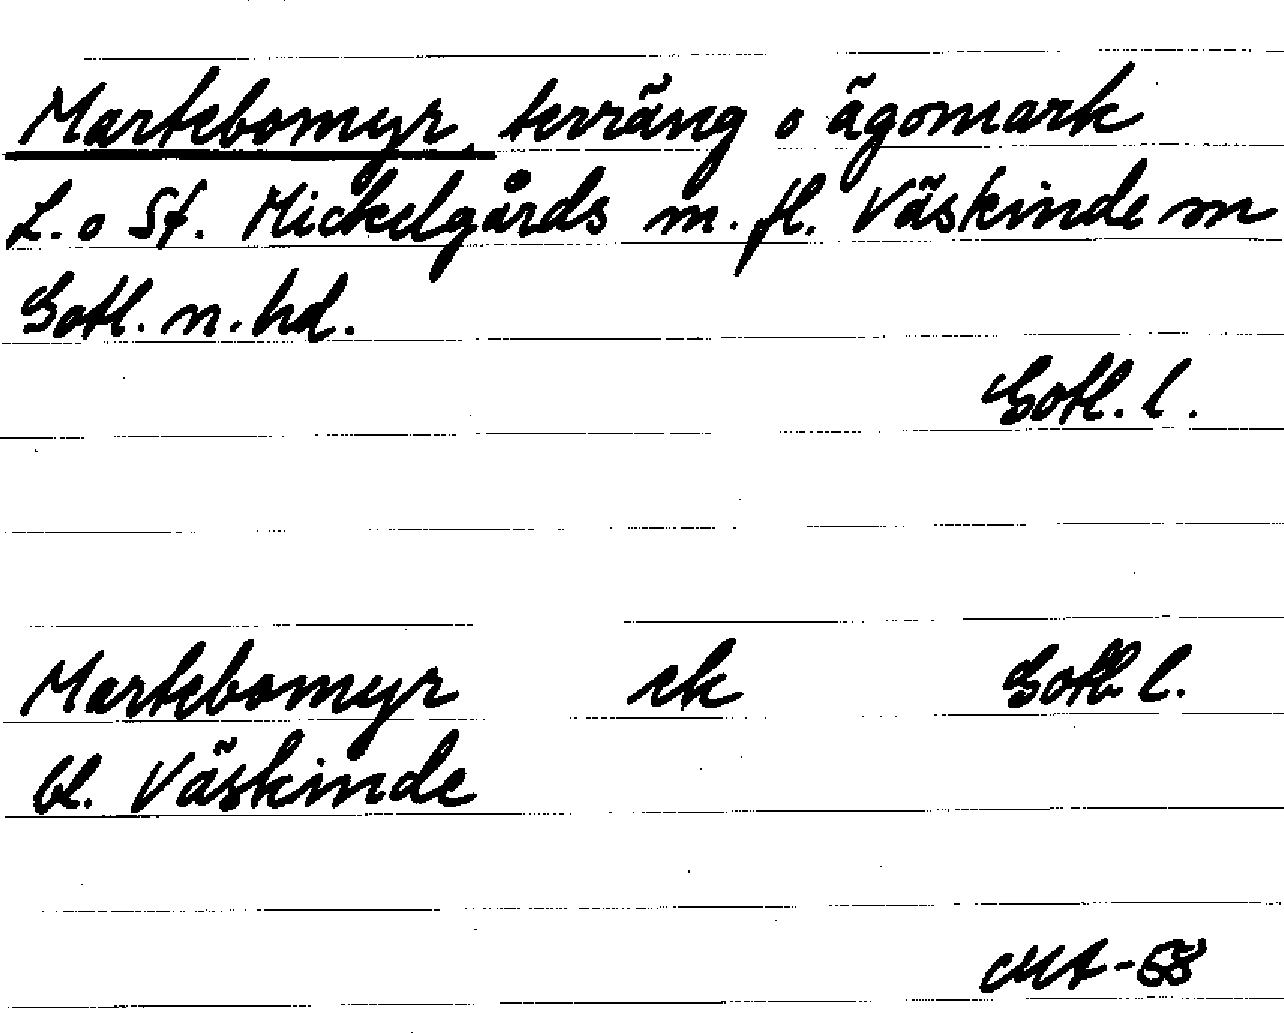 Martebomyr, terräng o ägomark
L. o St. Mickelgårds m. fl. Väskinde sn
Gotl. n. hd.
Gotl. l.
Martebomyr ek Gotl. l.
bl. Väskinde